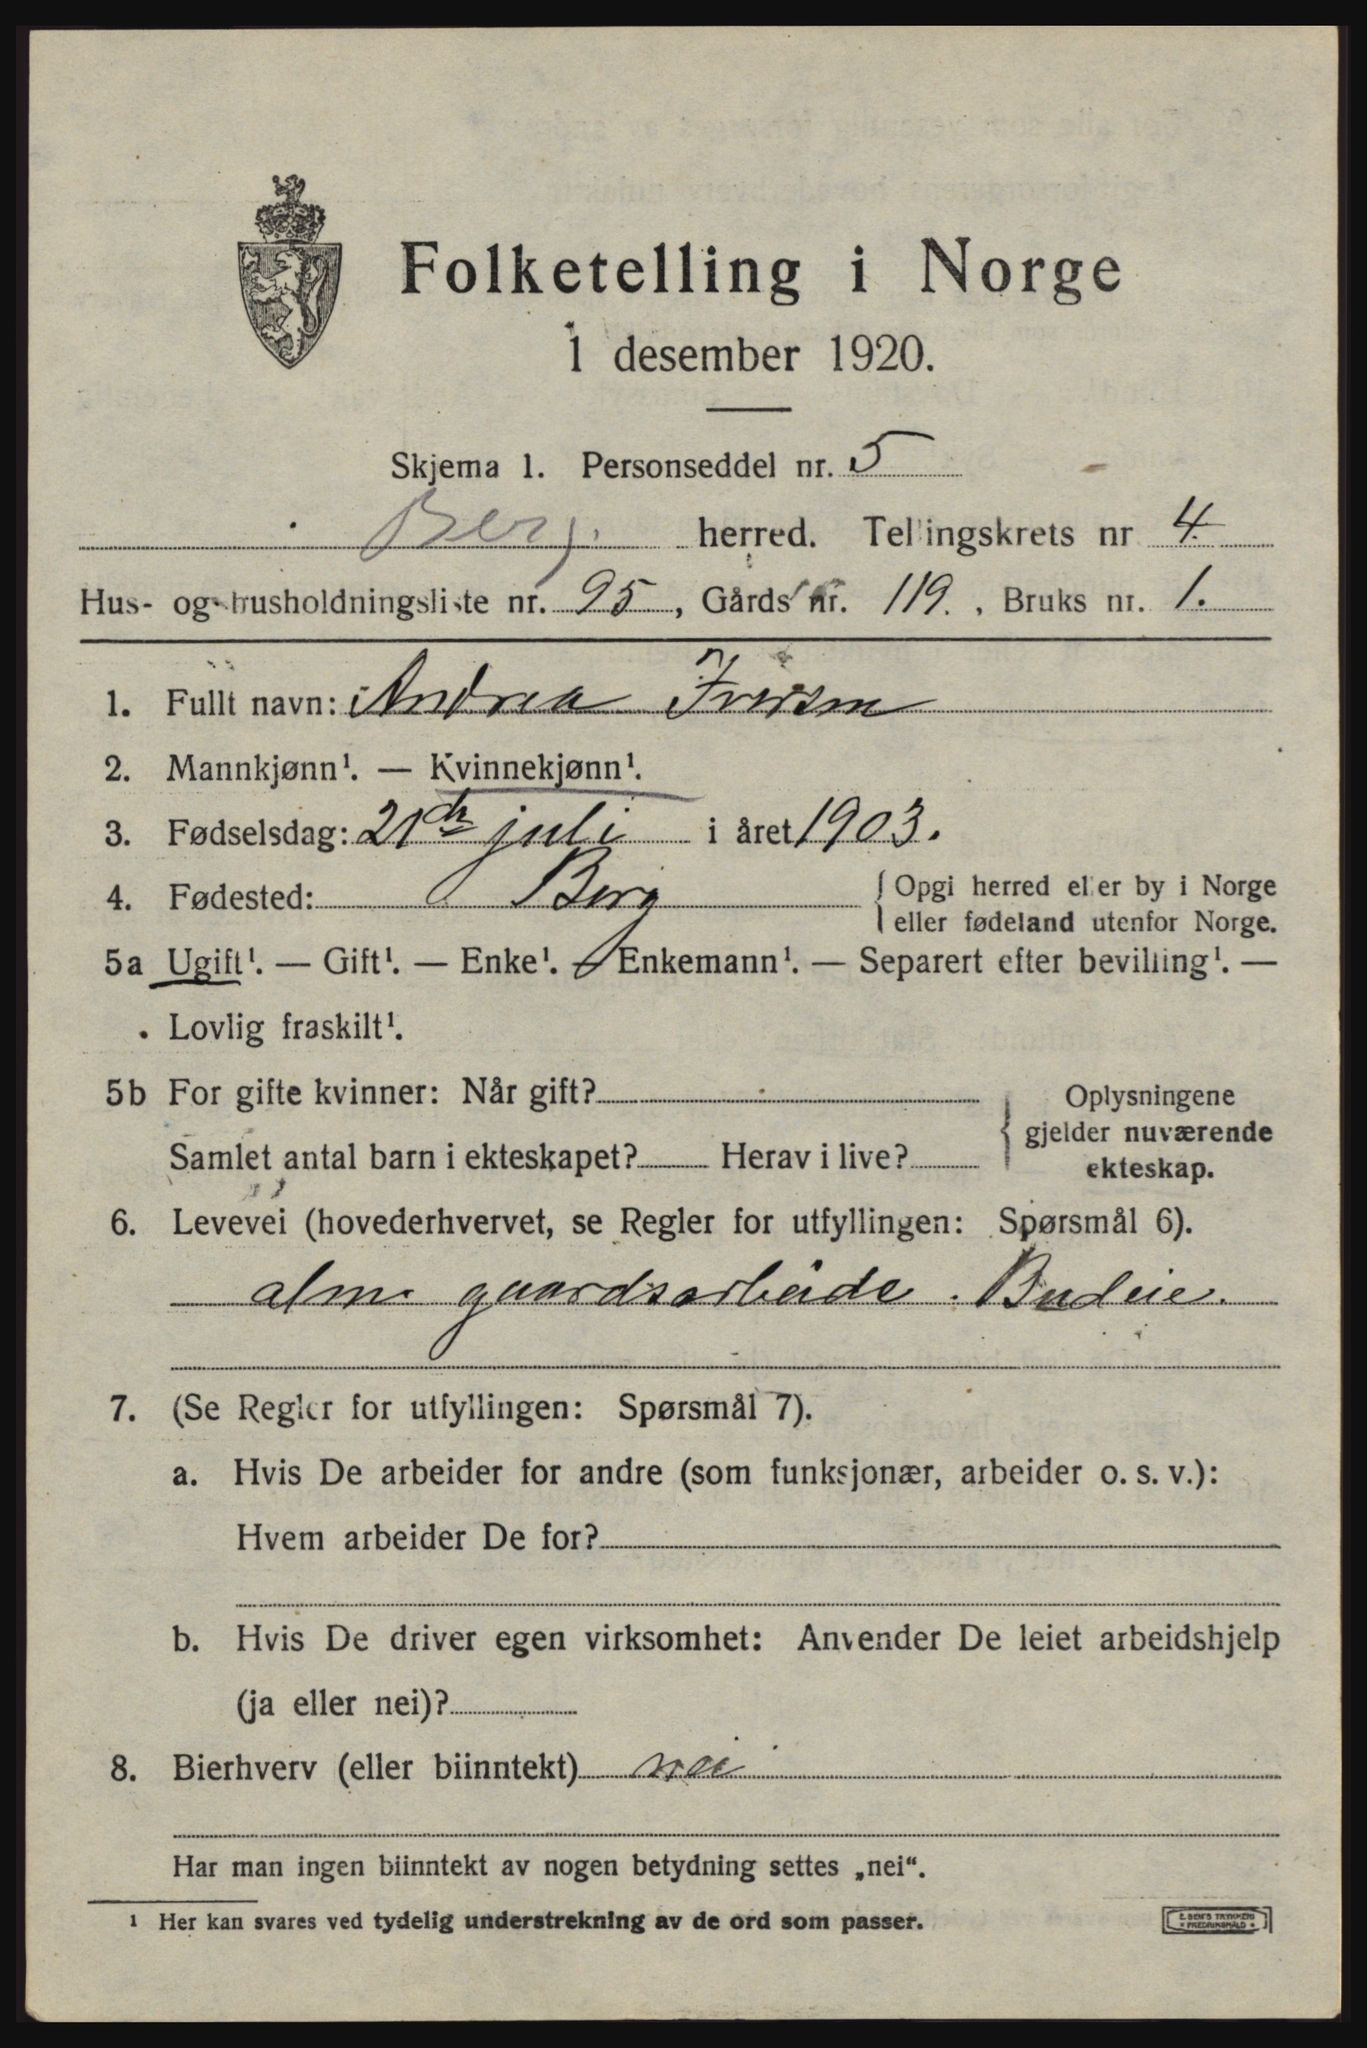 Folketelling i Norge
1 desember 1920.
Skjema 1. Personseddel nr. 5
Berg. herred. Tellingskrets nr 4.
Hus- og husholdningsliste nr. 95, Gårds nr. 119., Bruks nr. 1.
1. Fullt navn: Andrea Iversen
2. Mannkjønn¹. — Kvinnekjønn¹.
3. Fødselsdag: 21de juli i året 1903.
4. Fødested: Berg { Opgi herred eller by i Norge
eller fødeland utenfor Norge.
5a Ugift¹. — Gift¹. — Enke¹. — Enkemann¹. — Separert efter bevilling¹. —
Lovlig fraskilt¹.
5b For gifte kvinner: Når gift?
Samlet antal barn i ekteskapet? Herav i live?
Oplysningene
gjelder nuværende
ekteskap.
6. Levevei (hovederhvervet, se Regler for utfyllingen: Spørsmål 6).
alm. gaardsarbeide. Budeie.
7. (Se Regler for utfyllingen: Spørsmål 7).
a. Hvis De arbeider for andre (som funksjonær, arbeider o. s. v.):
Hvem arbeider De for?
b. Hvis De driver egen virksomhet: Anvender De leiet arbeidshjelp
(ja eller nei)?
8. Bierhverv (eller biinntekt) nei
Har man ingen biinntekt av nogen betydning settes „nei“.
¹ Her kan svares ved tydelig understrekning av de ord som passer.